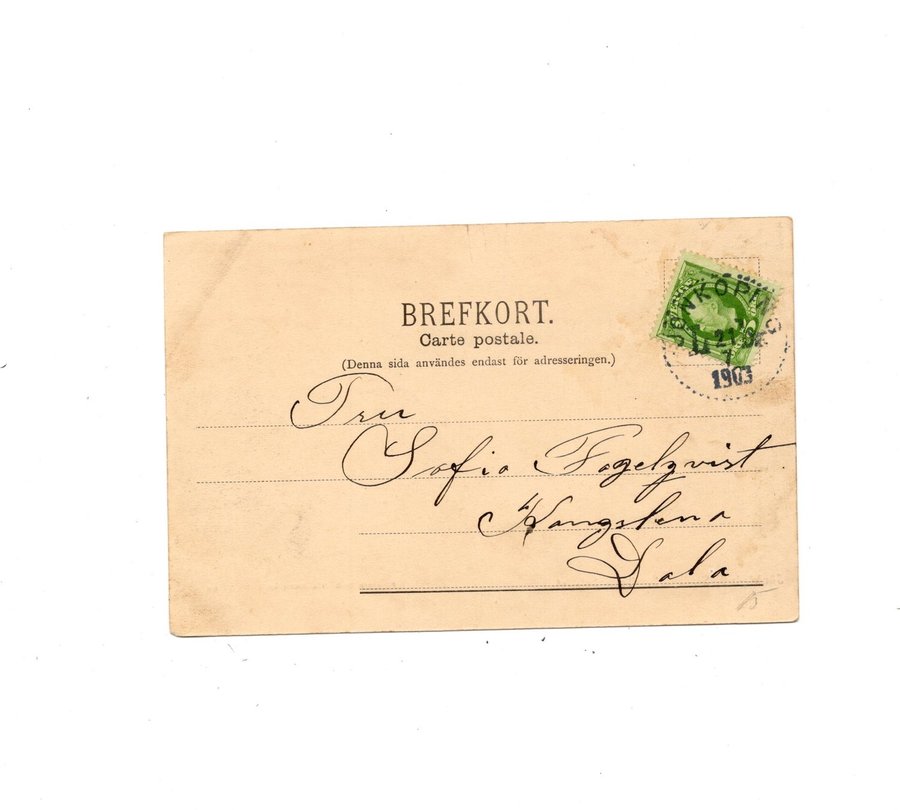 BREFKORT.
Carte postale.
(Denna sida användes endast för adresseringen.)
JÖNKÖPING
1903
Fru
Sofia Fogelqvist.
Kongslena
Dala
15